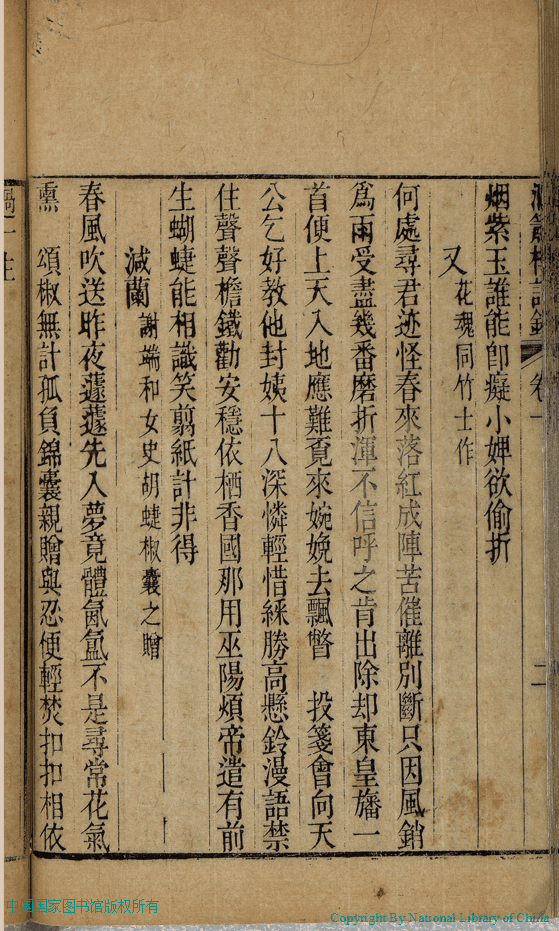 卷一
二
烟紫玉誰能卽癡小婢欲偷折
又花魂同竹士作
何處尋君迹怪春來落紅成陣苦催離別斷只因風銷
爲雨受盡幾番磨折渾不信呼之肯出除却東皇旛一
首便上天入地應難覓來婉娩去飄瞥　投箋會向天
公乞好教他封姨十八深憐輕惜綵勝高懸鈴漫語禁
住聲聲檐鐵勸安穩依栖香國那用巫陽煩帝遣有前
生蝴蜨能相識笑翦紙計非得
減蘭謝端和女史胡蜨椒囊之贈
春風吹送昨夜蘧蘧先入夢竟體氤氳不是尋常花氣
熏　頌椒無計孤負錦囊親贈與忍便輕焚扣扣相依
中国国家图书馆版权所有
Copyright By National Library of China